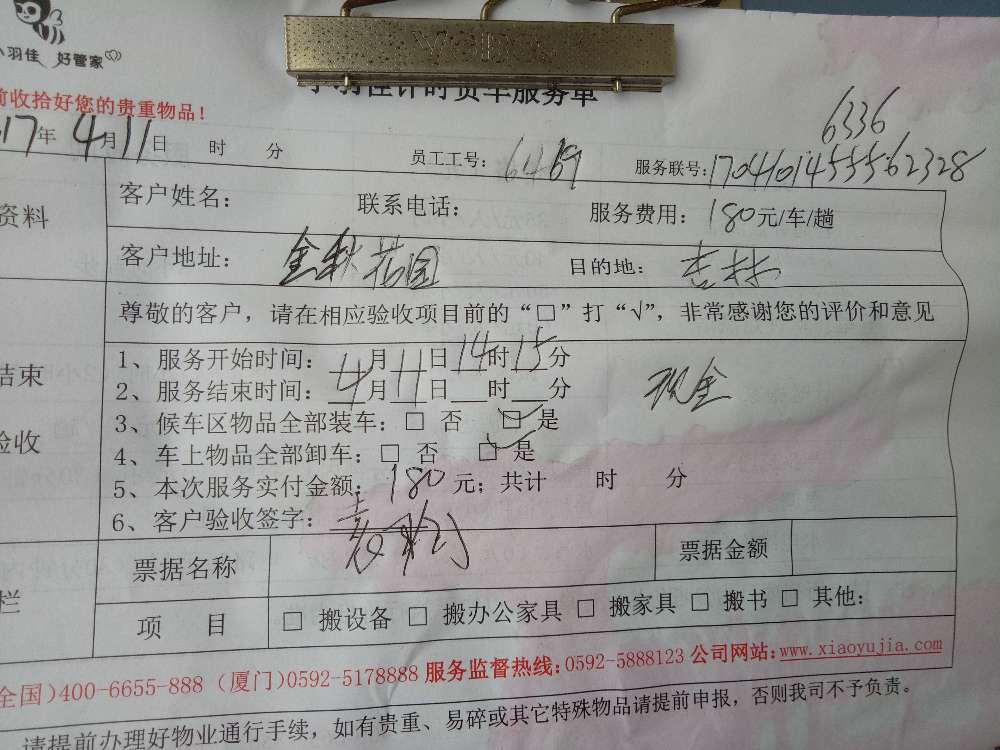 小羽佳 好管家
前收拾好您的贵重物品！
小羽佳计时货车服务单
17年 4月11日 时 分 员工工号： 6469 服务联号：17041014555562328
6336
资料
客户姓名： 联系电话： 服务费用：180元/车/趟
客户地址： 金秋花园 目的地： 吉林
尊敬的客户，请在相应验收项目前的“□”打“√”，非常感谢您的评价和意见
结束
验收
1、服务开始时间：4月11日14时15分
2、服务结束时间：4月11日___时___分 现金
3、候车区物品全部装车：□ 否 □ 是
4、车上物品全部卸车：□ 否 □ 是
5、本次服务实付金额：180元；共计 时 分
6、客户验收签字：
栏
票据名称 票据金额
项 目 □ 搬设备 □ 搬办公家具 □ 搬家具 □ 搬书 □ 其他：
全国）400-6655-888（厦门）0592-5178888 服务监督热线：0592-5888123 公司网站：www.xiaoyujia.com
请提前办理好物业通行手续，如有贵重、易碎或其它特殊物品请提前申报，否则我司不予负责。